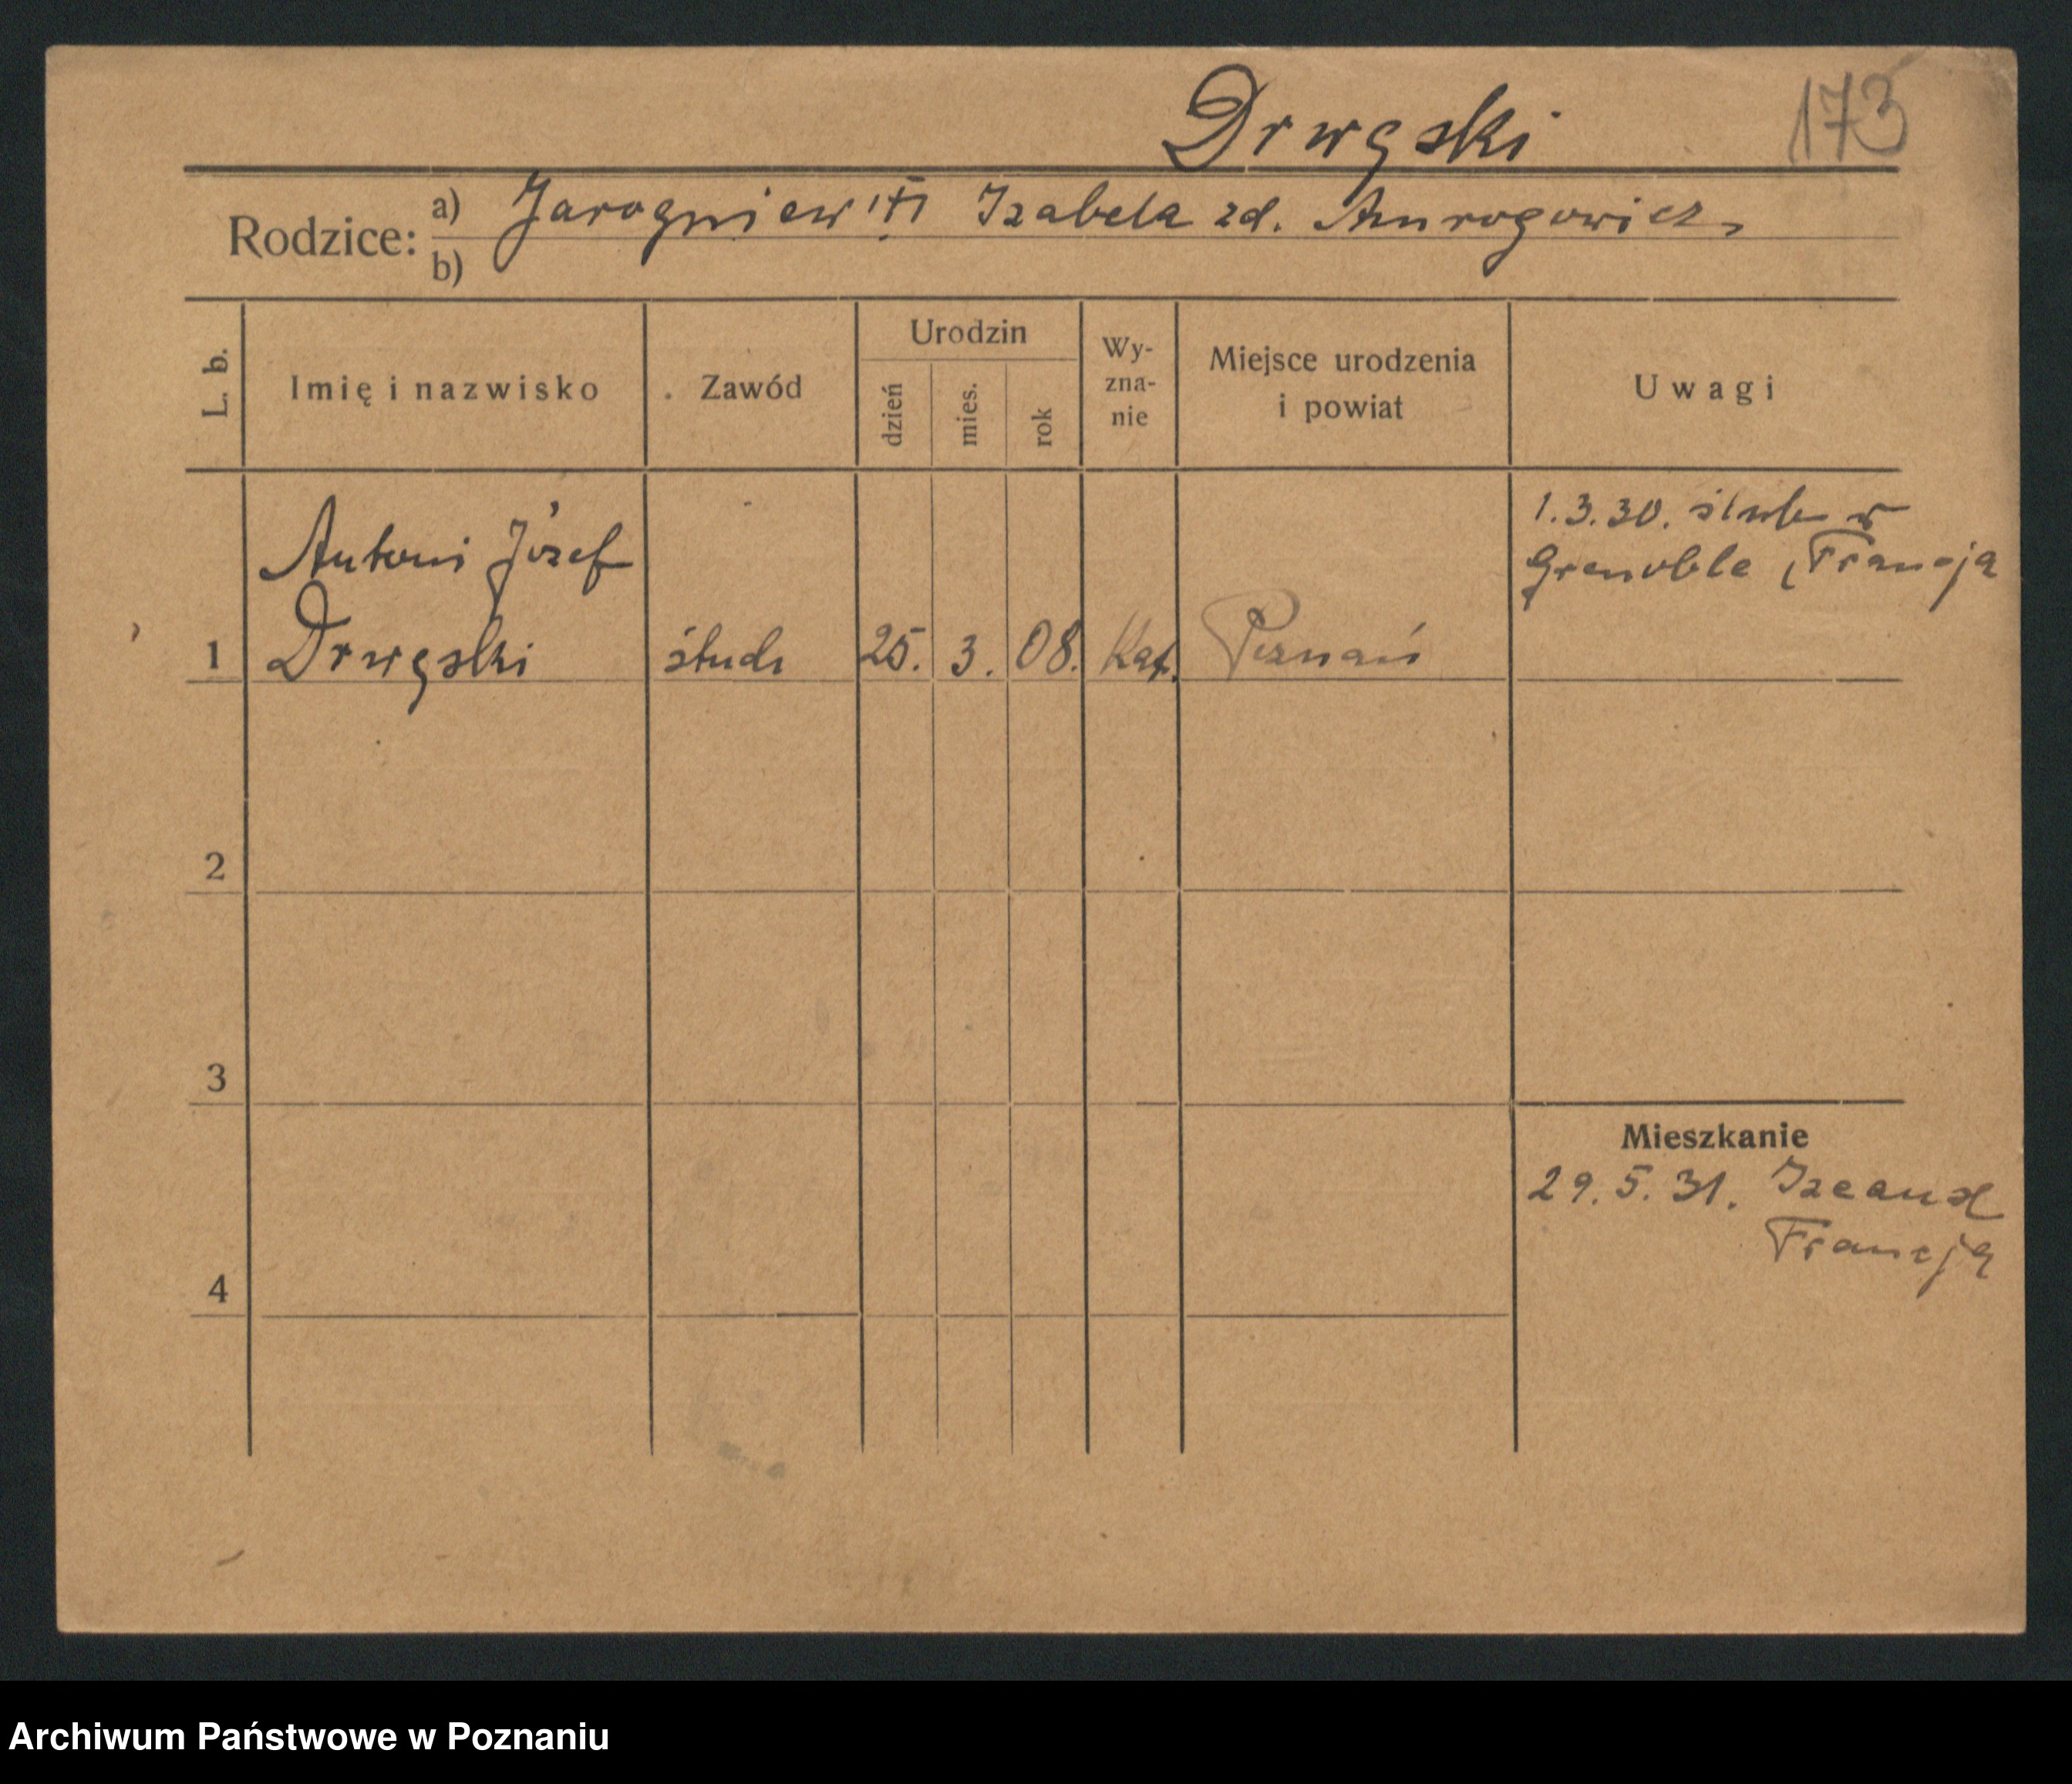 Drwęski 173
Rodzice: a) Jarogniew i Izabela zd. Amrogowicz
b)
L. b. Imię i nazwisko Zawód Urodzin dzień mies. rok Wy-zna-nie Miejsce urodzenia i powiat Uwagi
1.3.30. ślub w
Grenoble, Francja
Antoni Józef
1 Drwęski stud. 25. 3. 08. Kat. Poznań
2
3
Mieszkanie
29.5.31. Izeaux
Francja
4
Archiwum Państwowe w Poznaniu